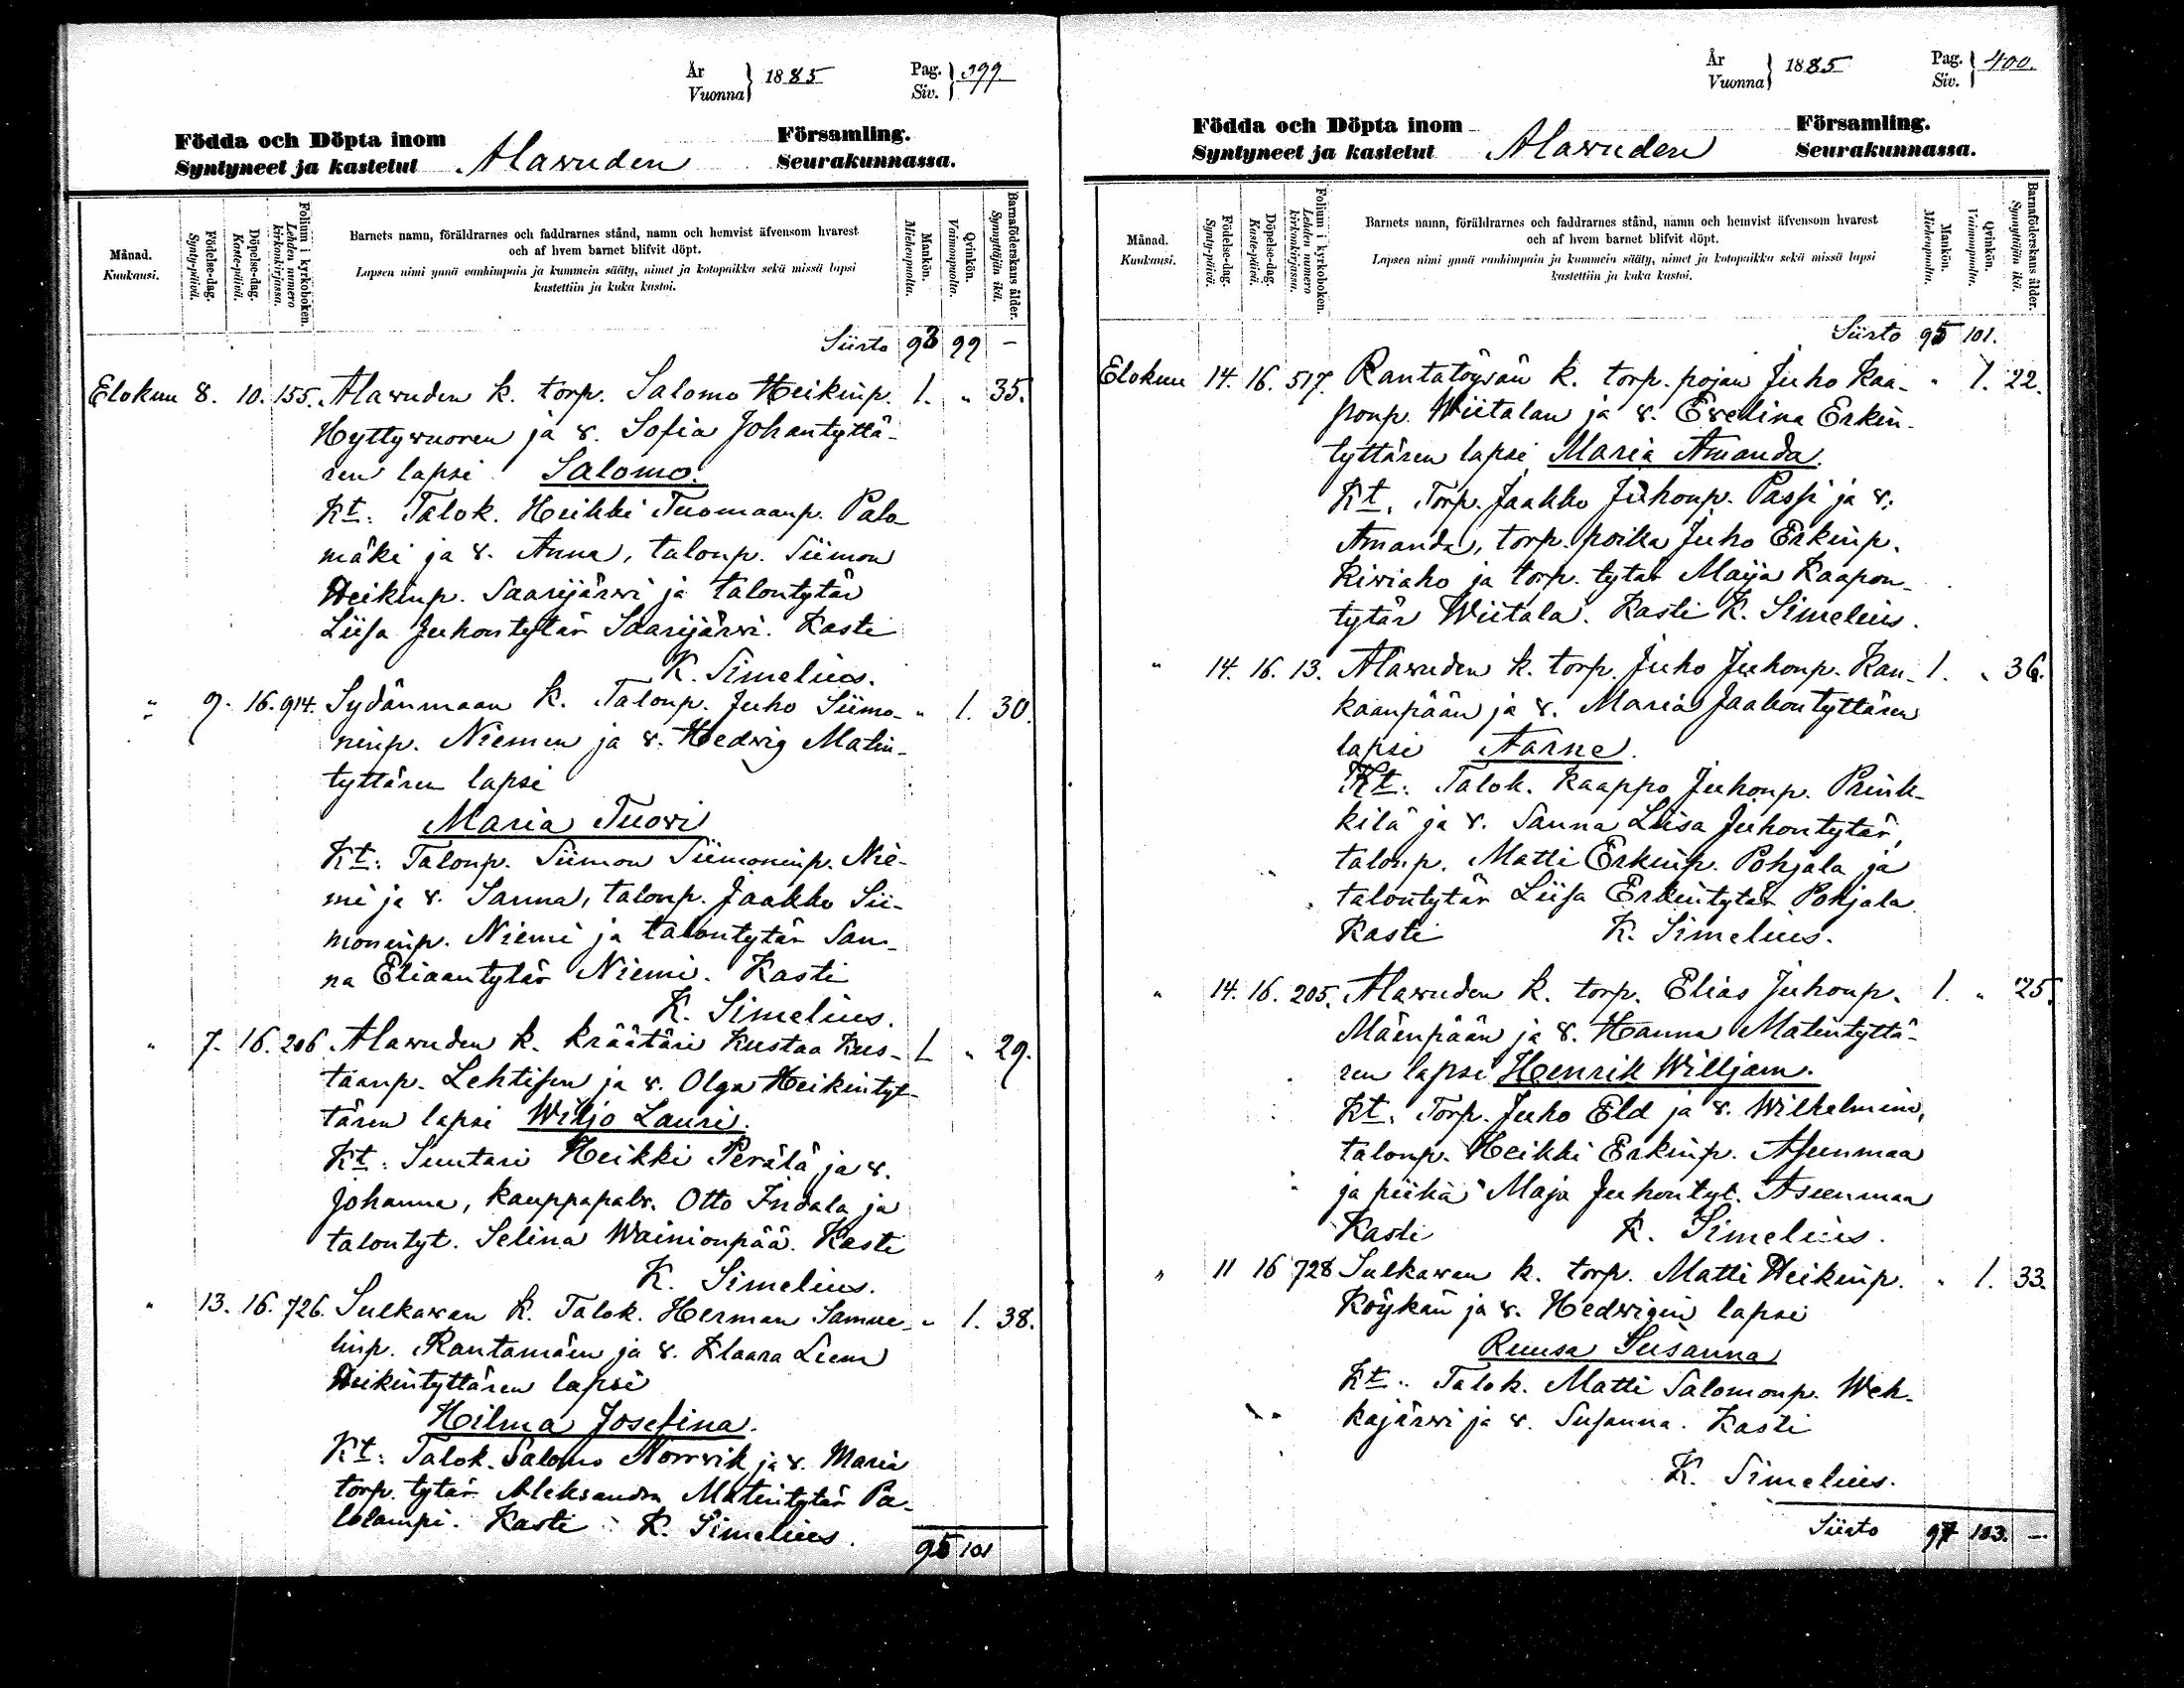 År
Vuonna } 1885 Pag.
Siv. } 399.
Födda och Döpta inom Församling.
Syntyneet ja kastetut Alavuden Seurakunnassa.
Månad.
Kuukausi.
Födelse-dag.
Synty-päivä.
Döpelse-dag.
Kaste-päivä.
Folium i kyrkoboken.
Lehden numero kirkonkirjassa.
Barnets namn, föräldrarnes och faddrarnes stånd, namn och hemvist äfvensom hvarest
och af hvem barnet blifvit döpt.
Lapsen nimi ynnä vanhimpain ja kummein sääty, nimet ja kotopaikka sekä missä lapsi
kastettiin ja kuka kastoi.
Mankön.
Miehenpuolta.
Qvinkön.
Vaimonpuolta.
Barnaföderskans ålder.
Synnyttäjän ikä.
Siirto 93 99 —
Elokuu 8. 10. 155. Alawuden k. torp. Salomo Heikinp. 1. " 35.
Hyttywuoren ja v. Sofia Johantyttä-
ren lapsi Salomo.
Kt: Talok. Heikki Tuomaanp. Palo
mäki ja v. Anna, talonp. Siimon
Heikinp. Saarijärwi ja talontytär
Liisa Juhontytär Saarijärwi. Kasti
K. Simelius.
" 9. 16. 914. Sydänmaan k. Talonp. Juho Siimo- " 1. 30.
ninp. Niemen ja v. Hedwig Matin-
tyttären lapsi
Maria Tuowi
Kt: Talonp. Siimon Siimoninp. Nie-
mi ja v. Sanna, talonp. Jaakko Sii-
moninp. Niemi ja talontytär San-
na Eliaantytär Niemi. Kasti
K. Simelius.
" 7. 16. 206. Alawuden k. kräätäri Kustaa Kus- 1. " 29.
taanp. Lehtisen ja v. Olga Heikintyt-
tären lapsi Wiljo Lauri.
Kt: Suutari Heikki Perälä ja v.
Johanna, kauppapalv. Otto Indala ja
talontyt. Selina Wainionpää. Kasti
K. Simelius.
" 13. 16. 726. Sulkawan k. Talok. Herman Samue- " 1. 38.
linp. Rantamäen ja v. Klaara Leena
Heikintyttären lapsi
Hilma Josefina.
Kt: Talok. Salomo Norrvik ja v. Maria
torp. tytär Aleksandra Matintytär Pa-
lolampi. Kasti K. Simelius.
95 101
År
Vuonna } 1885 Pag.
Siv. } 400.
Födda och Döpta inom Församling.
Syntyneet ja kastetut Alavuden Seurakunnassa.
Månad.
Kuukausi.
Födelse-dag.
Synty-päivä.
Döpelse-dag.
Kaste-päivä.
Folium i kyrkoboken.
Lehden numero kirkonkirjassa.
Barnets namn, föräldrarnes och faddrarnes stånd, namn och hemvist äfvensom hvarest
och af hvem barnet blifvit döpt.
Lapsen nimi ynnä vanhimpain ja kummein sääty, nimet ja kotopaikka sekä missä lapsi
kastettiin ja kuka kastoi.
Mankön.
Miehenpuolta.
Qvinkön.
Vaimonpuolta.
Barnaföderskans ålder.
Synnyttäjän ikä.
Siirto 95 101.
Elokuu 14. 16. 517. Rantatöysän k. torp. pojan Juho Kaa- " 1. 22.
ponp. Wiitalan ja v. Ewelina Erkin-
tyttären lapsi Maria Amanda.
Kt. Torp. Jaakko Juhonp. Passi ja v.
Amanda, torp. poika Juho Erkinp.
Kiwiaho ja torp. tytär Maija Kaapon-
tytär Wiitala. Kasti K. Simelius.
" 14. 16. 13. Alawuden k. torp. Juho Juhonp. Kan- 1. " 36.
kaanpään ja v. Maria Jaakontyttären
lapsi Aarne.
Kt: Talok. Kaappo Juhonp. Prink-
kilä ja v. Sanna Liisa Juhontytär,
talonp. Matti Erkinp. Pohjala ja
talontytär Liisa Erkintytär Pohjala
Kasti K. Simelius.
" 14. 16. 205. Alawuden k. torp. Elias Juhonp. 1. " 25.
Mäenpään ja v. Hanna Matintyttä-
ren lapsi Henrik William.
Kt. Torp. Juho Eld ja v. Wilhelmina,
talonp. Heikki Erkinp. Asunmaa
ja piika Maja Juhontyt. Asunmaa
Kasti K. Simelius.
" 11 16 728 Sulkawan k. torp. Matti Heikinp. " 1. 33.
Köykän ja v. Hedwigin lapsi
Ruusa Susanna
Kt: Talok. Matti Salomonp. Weh-
kajärwi ja v. Susanna. Kasti
K. Simelius.
Siirto 97 103. —